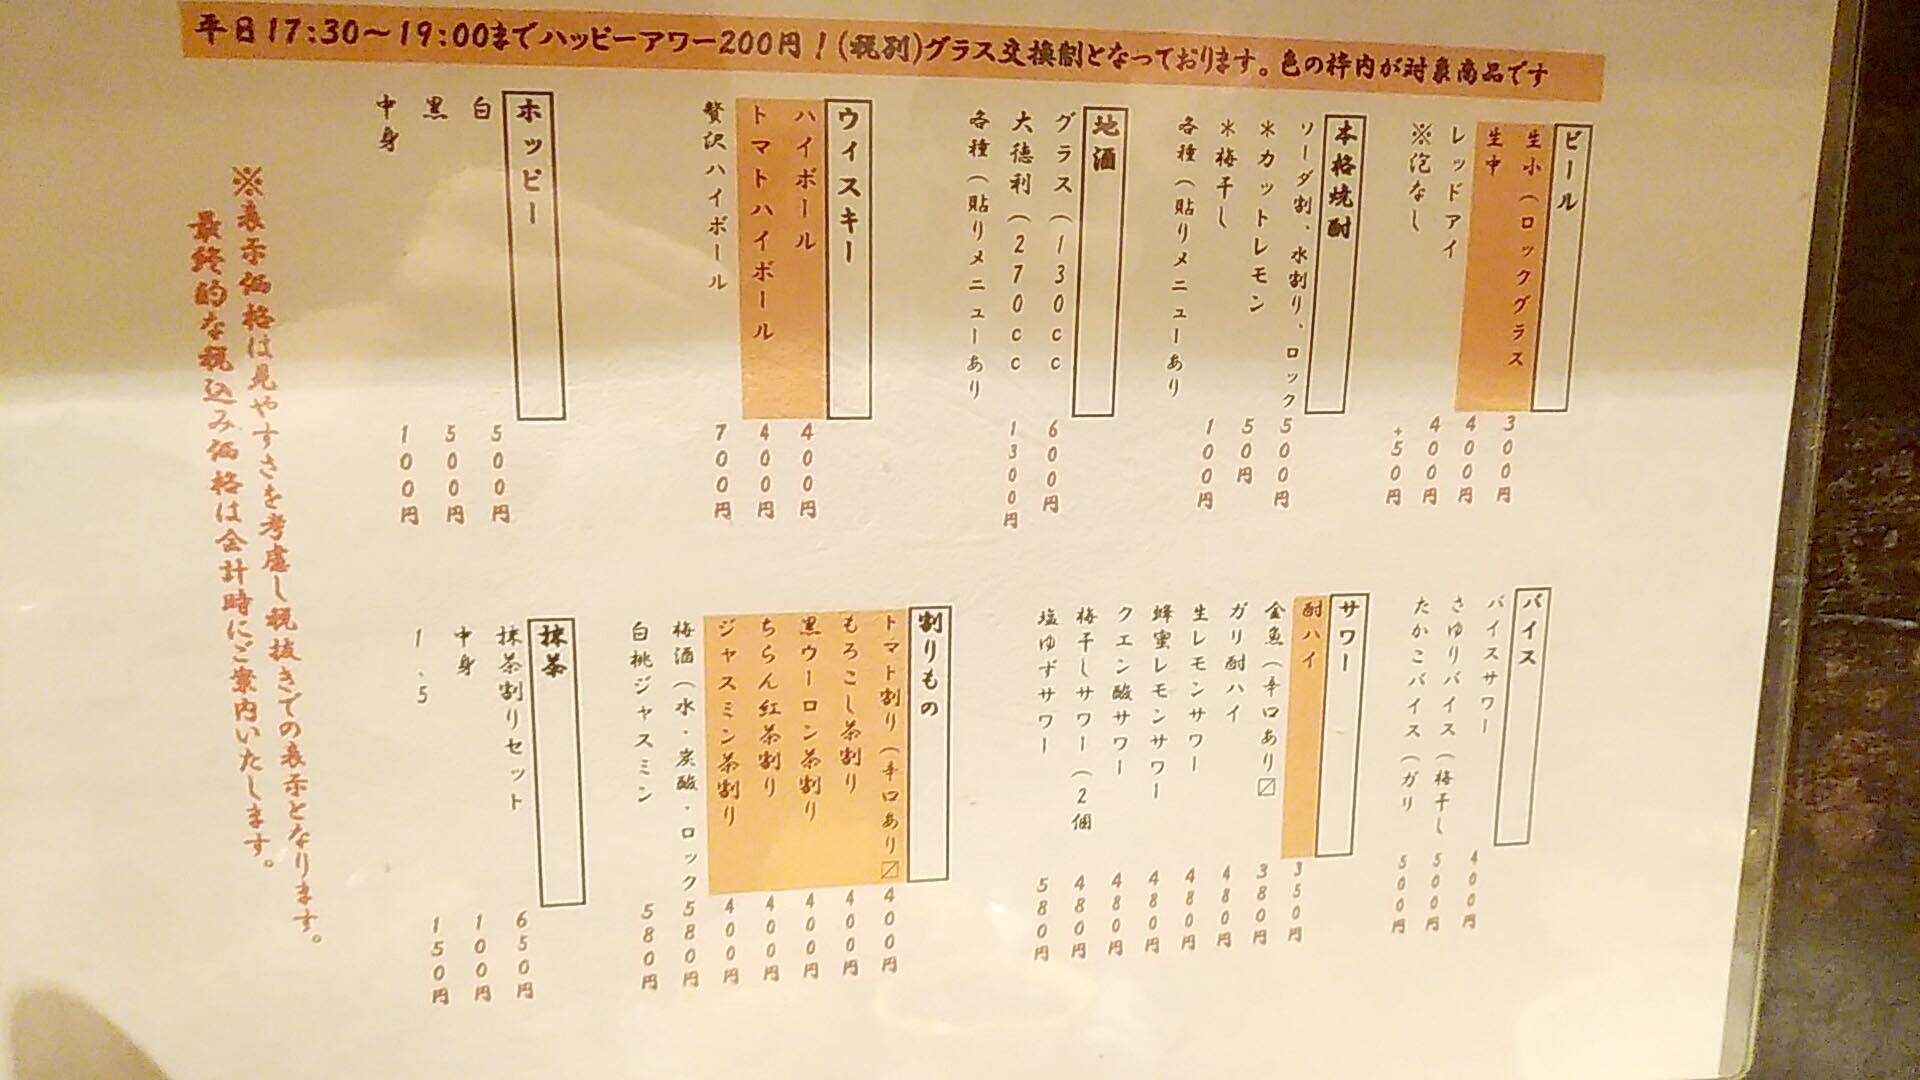 平日17:30～19:00までハッピーアワー200円！(税別)グラス交換制となっております。色の枠内が対象商品です
ビール
生小（ロックグラス 300円
生中 400円
レッドアイ 400円
※泡なし +50円
本格焼酎
ソーダ割、水割り、ロック 500円
＊カットレモン 50円
＊梅干し 100円
各種（貼りメニューあり
地酒
グラス（130cc 600円
大徳利（270cc 1300円
各種（貼りメニューあり
ウイスキー
ハイボール 400円
トマトハイボール 400円
贅沢ハイボール 700円
ホッピー
白 500円
黒 500円
中身 100円
バイス
バイスサワー 400円
さゆりバイス（梅干し 500円
たかこバイス（ガリ 500円
サワー
酎ハイ 350円
金魚（辛口あり〼 380円
ガリ酎ハイ 480円
生レモンサワー 480円
蜂蜜レモンサワー 480円
クエン酸サワー 480円
梅干しサワー（2個 480円
塩ゆずサワー 580円
割りもの
トマト割り（辛口あり〼 400円
もろこし茶割り 400円
黒ウーロン茶割り 400円
ちらん紅茶割り 400円
ジャスミン茶割り 400円
梅酒（水・炭酸・ロック 580円
白桃ジャスミン 580円
抹茶
抹茶割りセット 650円
中身 100円
1.5 150円
※表示価格は見やすさを考慮し税抜きでの表示となります。
最終的な税込み価格は会計時にご案内いたします。